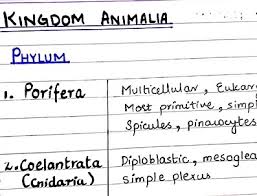 KINGDOM ANIMALIA
PHYLUM
1. Porifera
Multicellular, Eukar
Most primitive, simp
Spicules, pinacocytes
2. Coelantrata
(Cnidaria)
Diploblastic, mesoglea
simple plexus